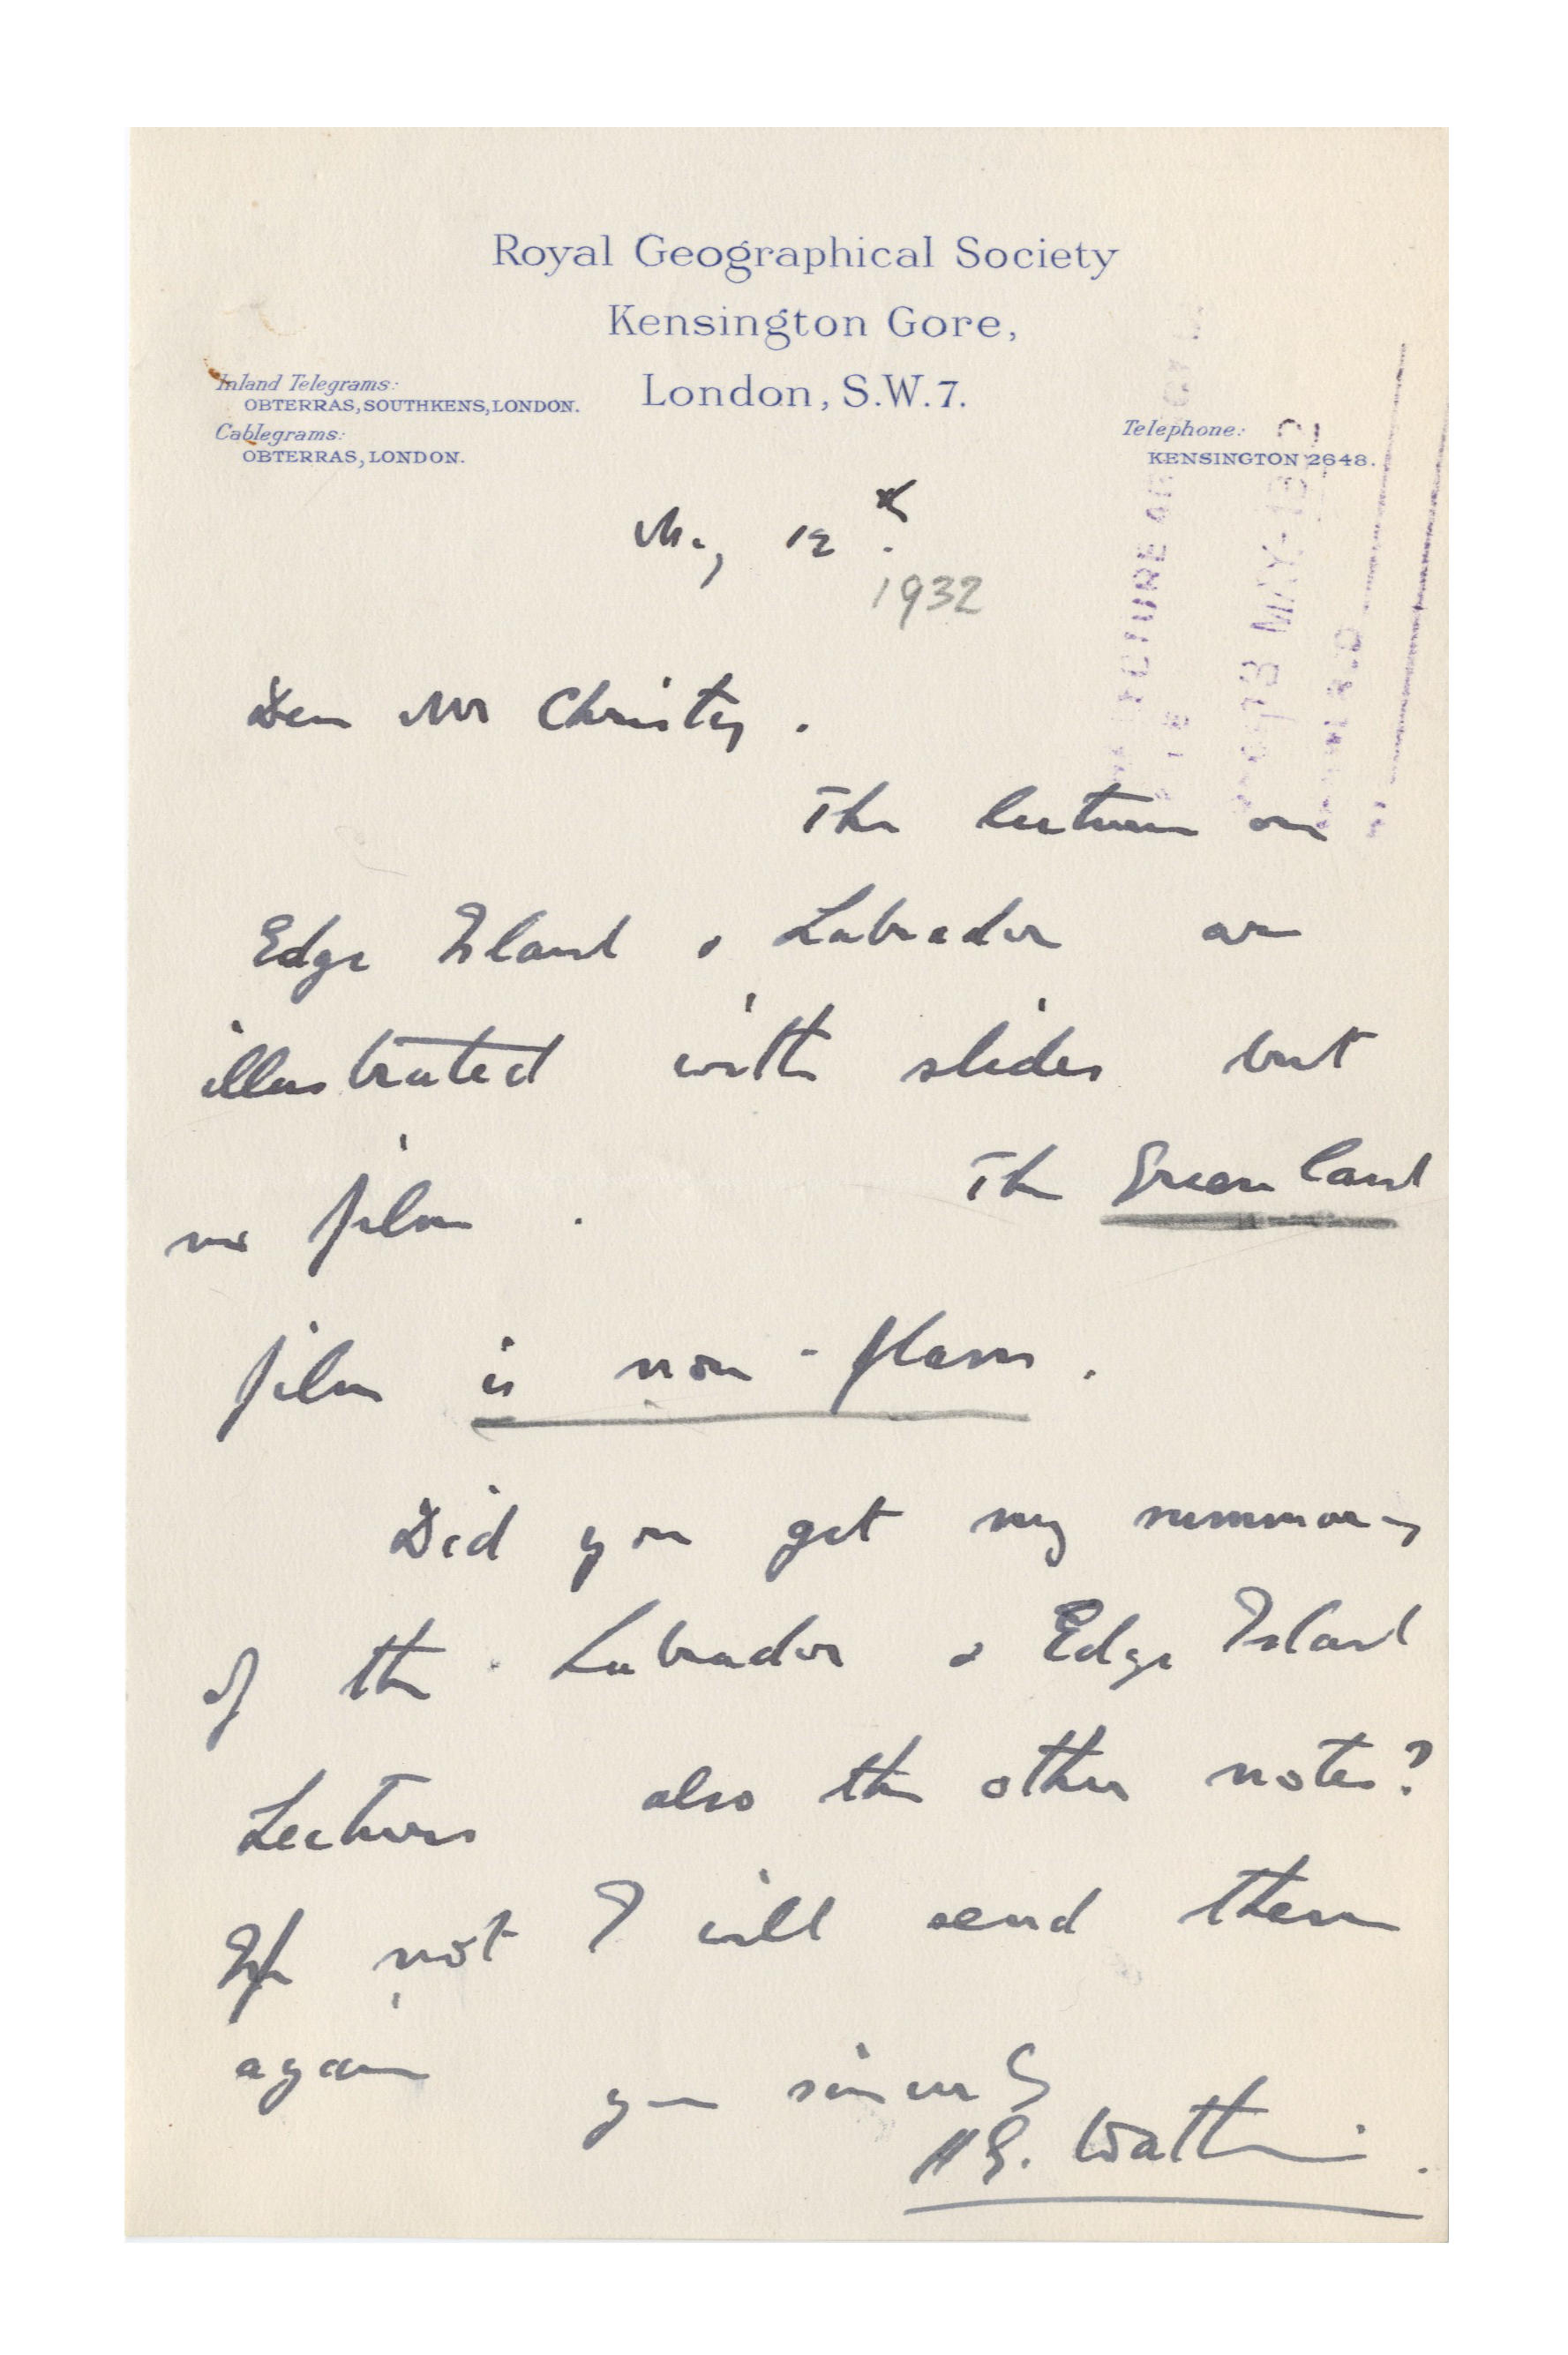 Royal Geographical Society
Kensington Gore,
London, S.W.7.
Inland Telegrams:
OBTERRAS, SOUTHKENS, LONDON.
Cablegrams:
OBTERRAS, LONDON.
Telephone:
KENSINGTON 2648.
May 12th.
1932
Dear Mr Christy.
The lectures on
Edge Island & Labrador are
illustrated with slides but
no film. The Greenland
film is non-flam.
Did you get my summary
of the Labrador & Edge Island
Lectures also the other notes?
If not I will send them
again
yours sincerely
H.G. Watkins.
13 MAY 1932